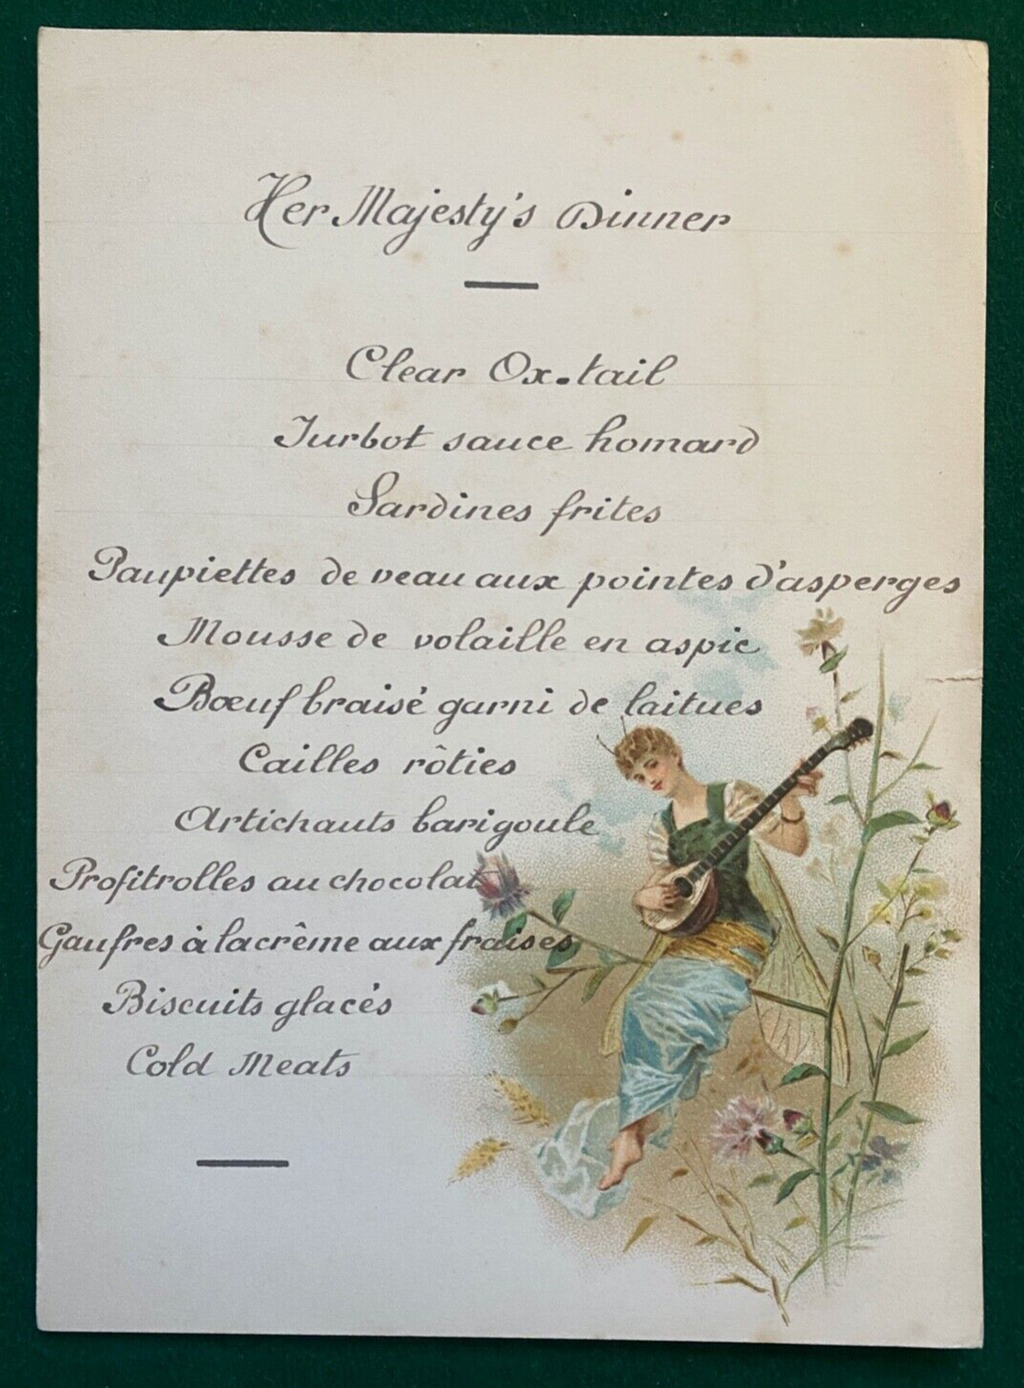 Her Majesty's Dinner
Clear Ox-tail
Turbot sauce homard
Sardines frites
Paupiettes de veau aux pointes d'asperges
Mousse de volaille en aspic
Bœuf braisé garni de laitues
Cailles rôties
Artichauts barigoule
Profitrolles au chocolat
Gaufres à la crême aux fraises
Biscuits glacés
Cold Meats